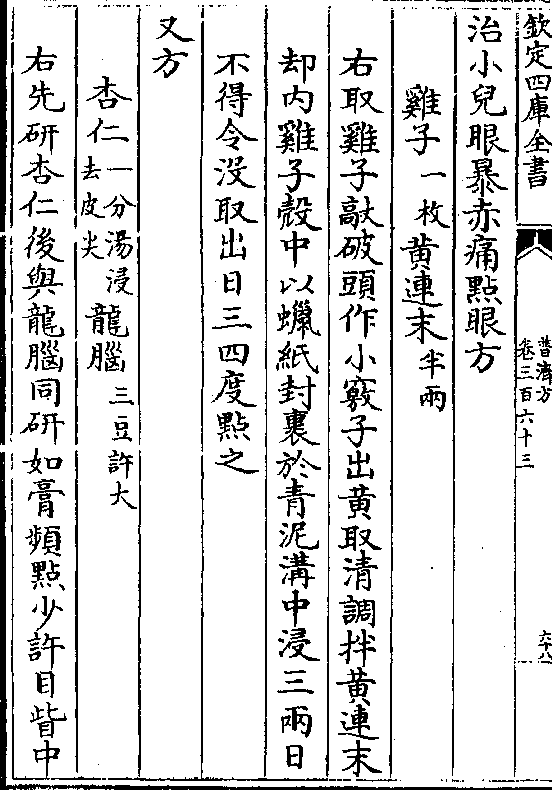 欽定四庫全書
普濟方
卷三百六十三
六十八
治小兒眼暴赤痛點眼方
雞子一枚黄連末半兩
右取雞子敲破頭作小竅子出黄取清調拌黄連末
却内雞子殻中以蠟紙封裹於青泥溝中浸三兩日
不得令没取出日三四度點之
又方
杏仁一分湯浸去皮尖龍腦三豆許大
右先研杏仁後與龍腦同研如膏頻點少許目眥中